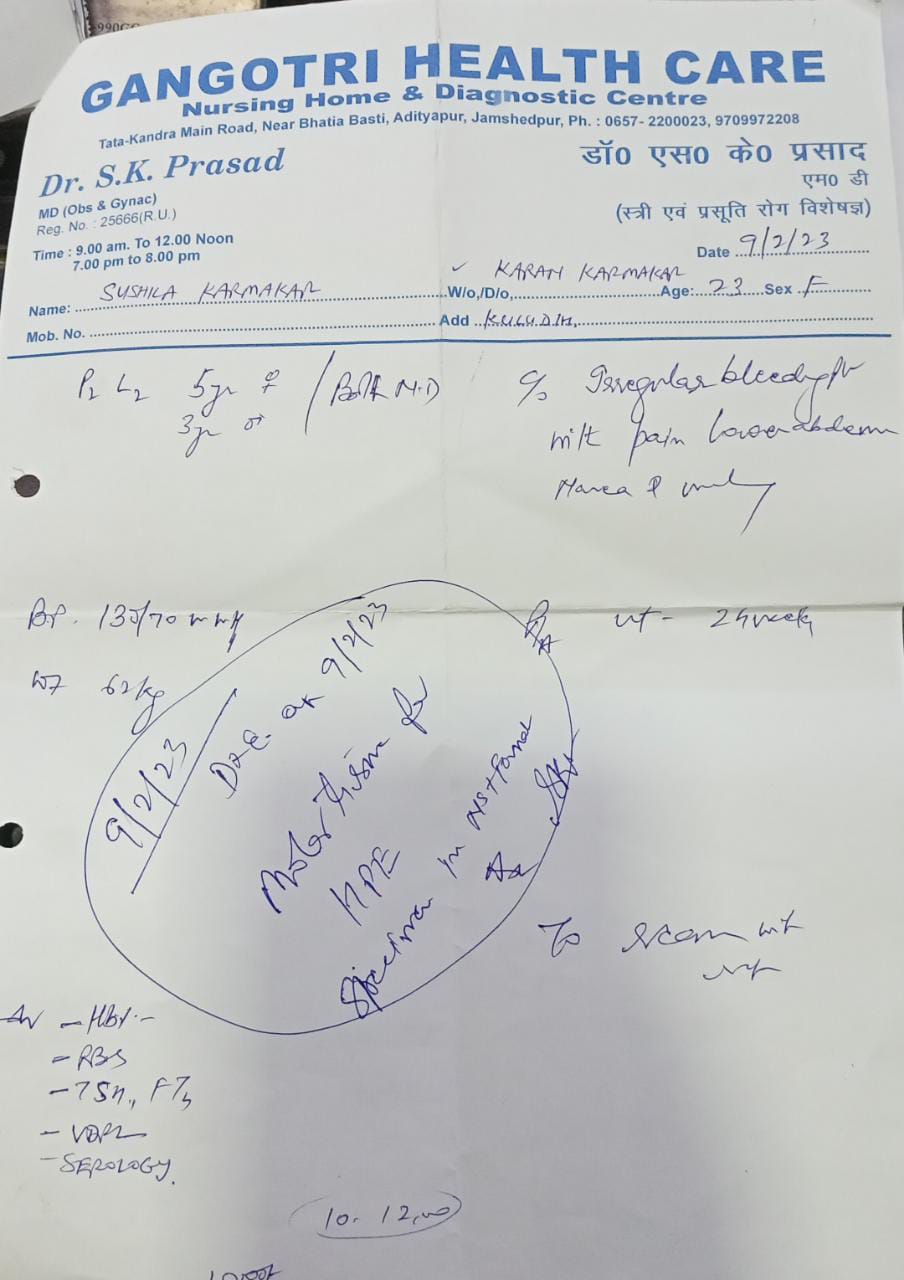 990
GANGOTRI HEALTH CARE
Nursing Home & Diagnostic Centre
Tata-Kandra Main Road, Near Bhatia Basti, Adityapur, Jamshedpur, Ph. : 0657- 2200023, 9709972208
Dr. S.K. Prasad
MD (Obs & Gynac)
Reg. No. : 25666(R.U.)
Time : 9.00 am. To 12.00 Noon
7.00 pm to 8.00 pm
डॉ0 एस0 के0 प्रसाद
एम0 डी
(स्त्री एवं प्रसूति रोग विशेषज्ञ)
Date 9/2/23
Name: SUSHILA KARMAKAR W/o,/D/o, KARAN KARMAKAR Age: 23 Sex F
Mob. No. Add KULUDIH,
P2 L2 5yr ♀
3yr ♂
Both N.D
c/o Irregular bleeding pv
with pain lower abdomen
B.P. 130/70 mmHg
wt 62kg
P/A ut - 24 week
9/2/23
D&E on 9/2/23
Molar tissue for
HPE
Specimen in
To
- HBV
- RBS
- TSH, FT4
- VDRL
- SEROLOGY.
10. 12,00